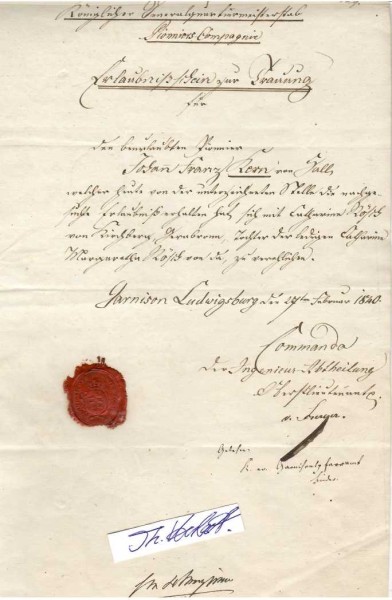 Königlicher Generalquartiermeisterstab
Pioniers Compagnie
Erlaubnißschein zur Trauung
für
den beurlaubten Pionier
Johan Franz Kern von Hall,
welcher heute von der unterzeichneten Stelle die nachge-
suchte Erlaubniß erhalten hat, sich mit Catharine Rösch
von Kirchberg, Tochter der ledigen Catharine
Margaretha Rösch von da, zu verehlichen.
Garnison Ludwigsburg den 27ten Februar 1840.
Commando
der Ingenieur-Abtheilung
Oberstlieutenant
v.
Gesehen
K. Garnisons Pfarramt